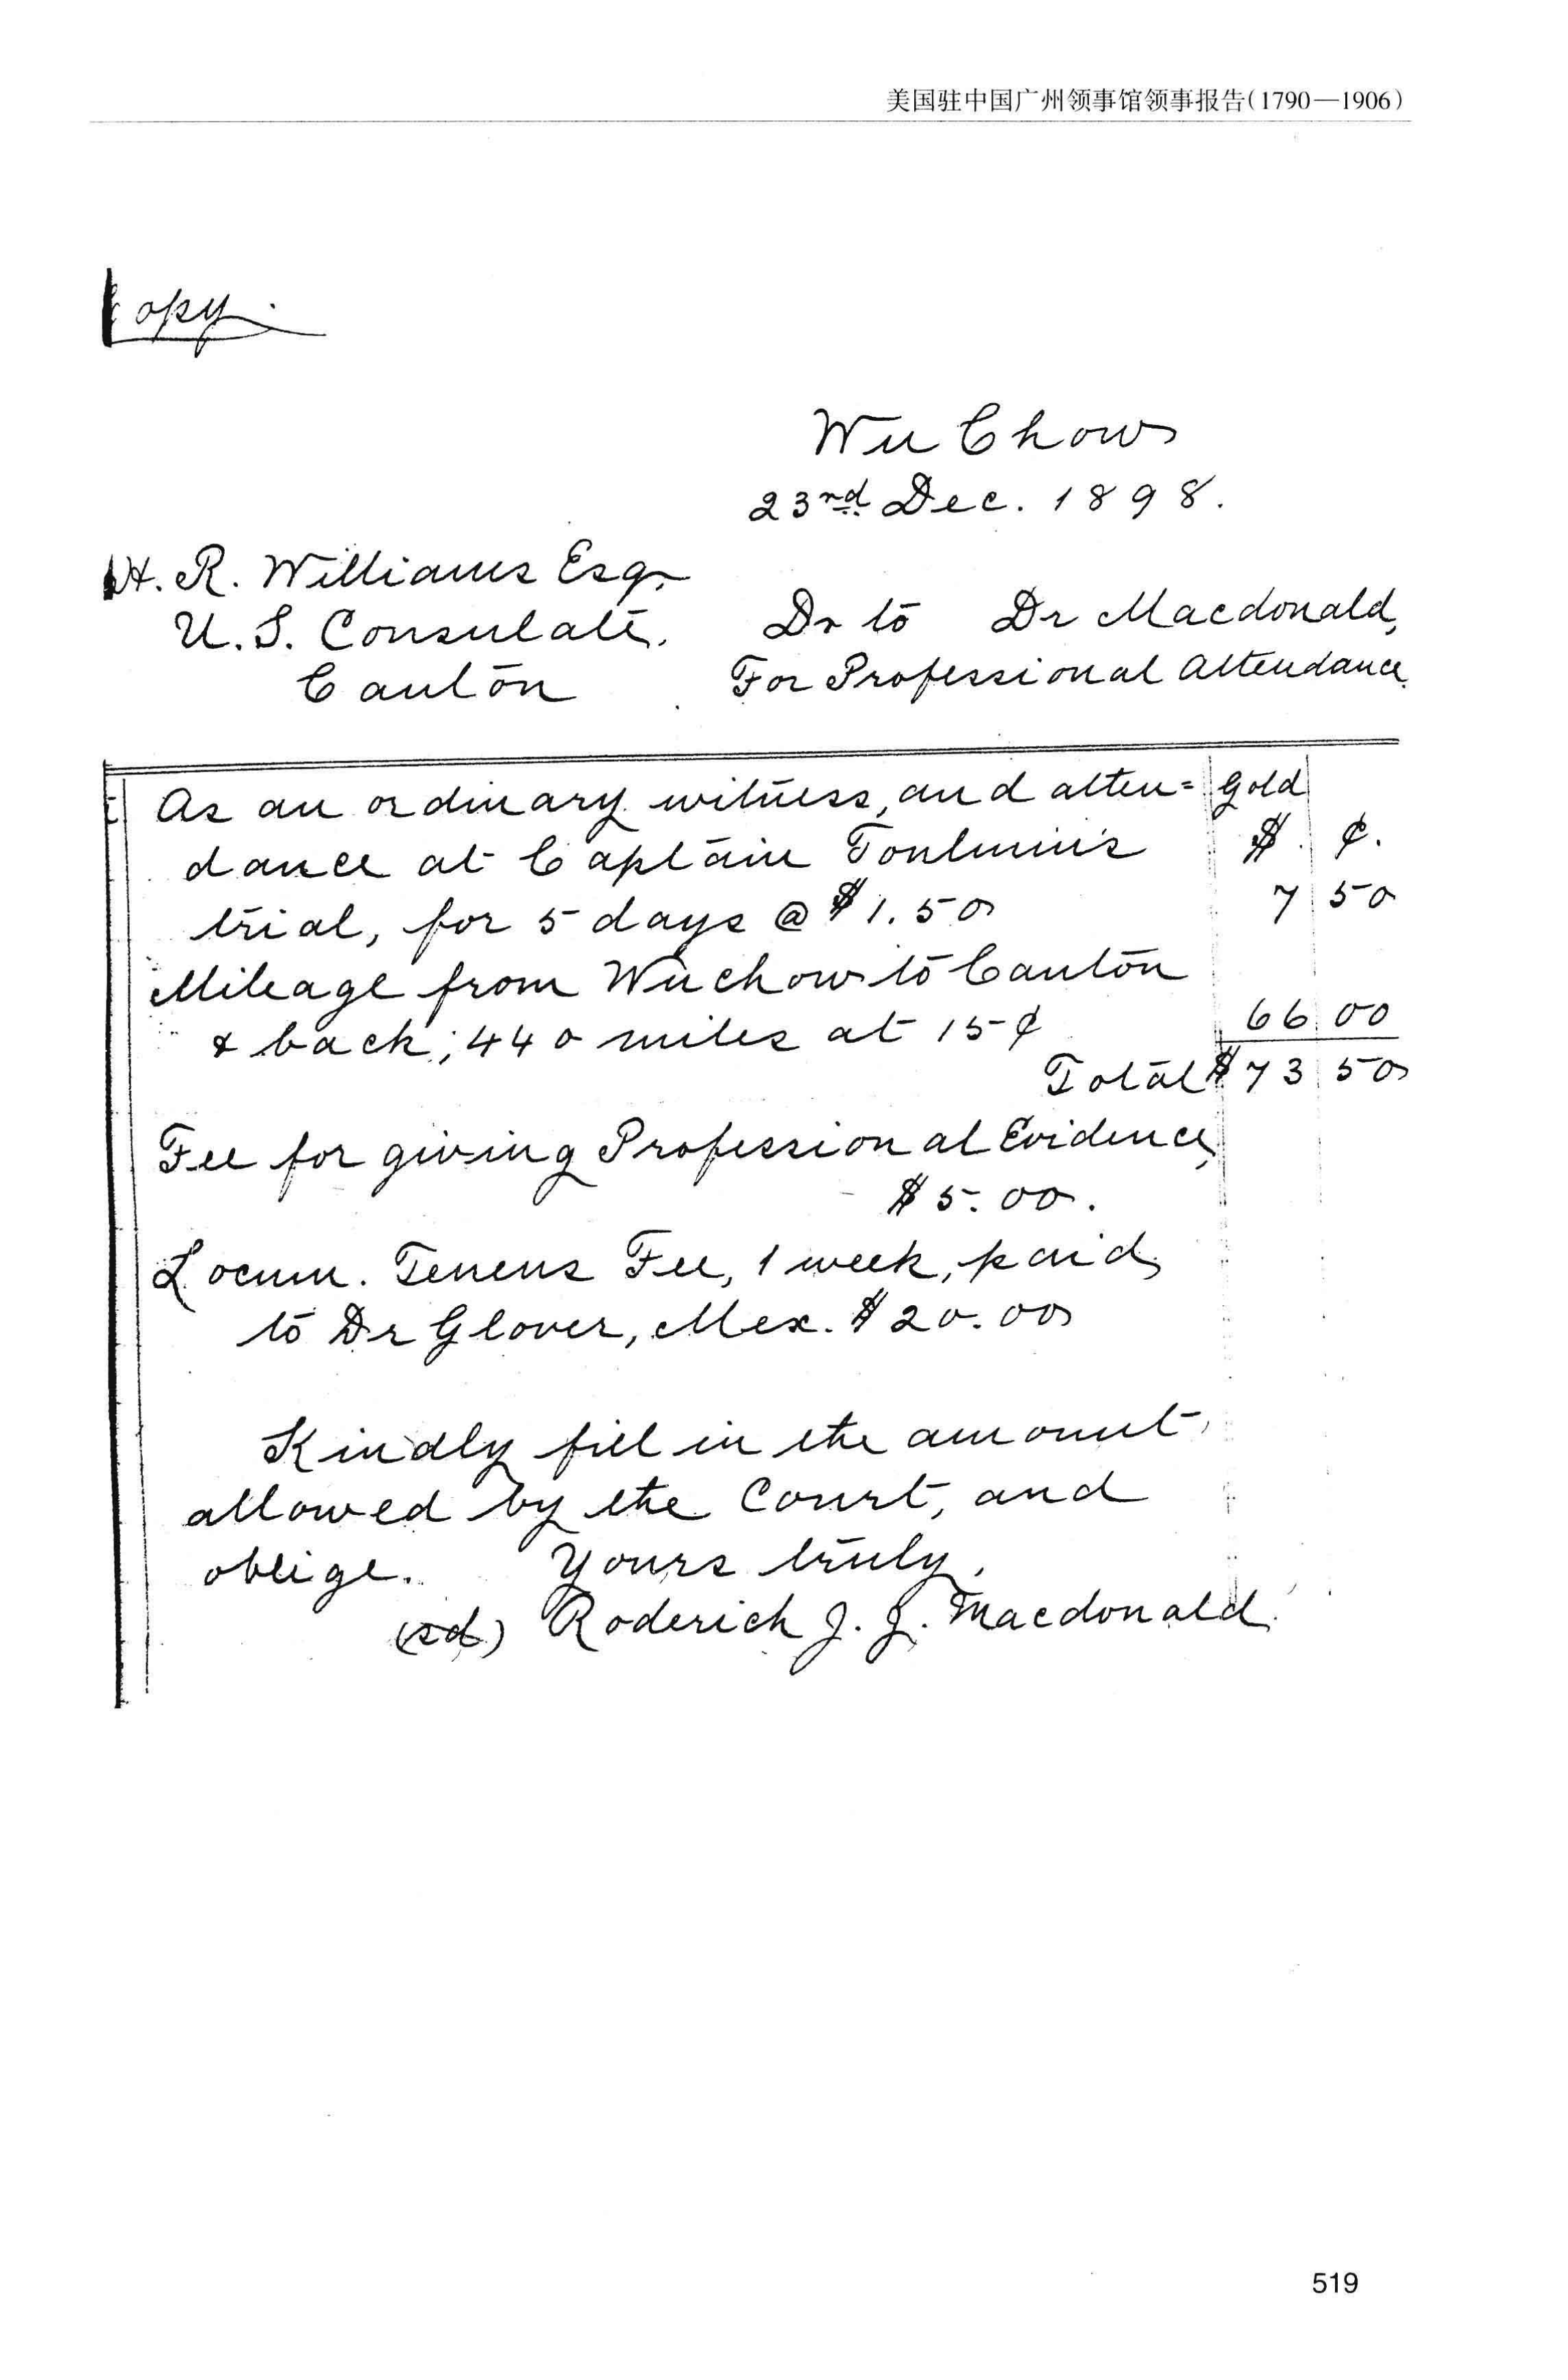 美国驻中国广州领事馆领事报告(1790—1906)
Copy.
Wu Chow
23rd Dec. 1898.
H. R. Williams Esq.
U. S. Consulate.
Canton
Dr to Dr Macdonald,
For Professional Attendance.
As an ordinary witness, and atten= Gold
dance at Captain Toulmin's $ ¢.
trial, for 5 days @ $1.50 7 50
Mileage from Wuchow to Canton
& back; 440 miles at 15¢ 66 00
Total $73 50
Fee for giving Professional Evidence,
$5.00.
Locum. Tenens Fee, 1 week, paid
to Dr Glover, Mex. $20.00
Kindly fill in the amount
allowed by the Court, and
oblige. Yours truly,
(sd) Roderich J. J. Macdonald.
519